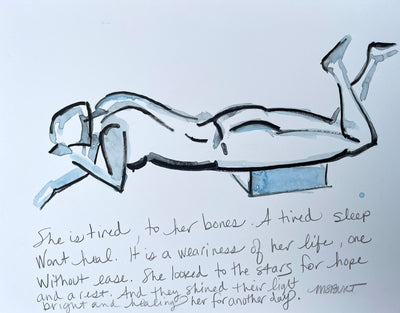 She is tired, to her bones. A tired sleep
Wont heal. It is a weariness of her life, one
Without ease. She looked to the stars for hope
and a rest. And they shined their light
bright and healing her for another day.